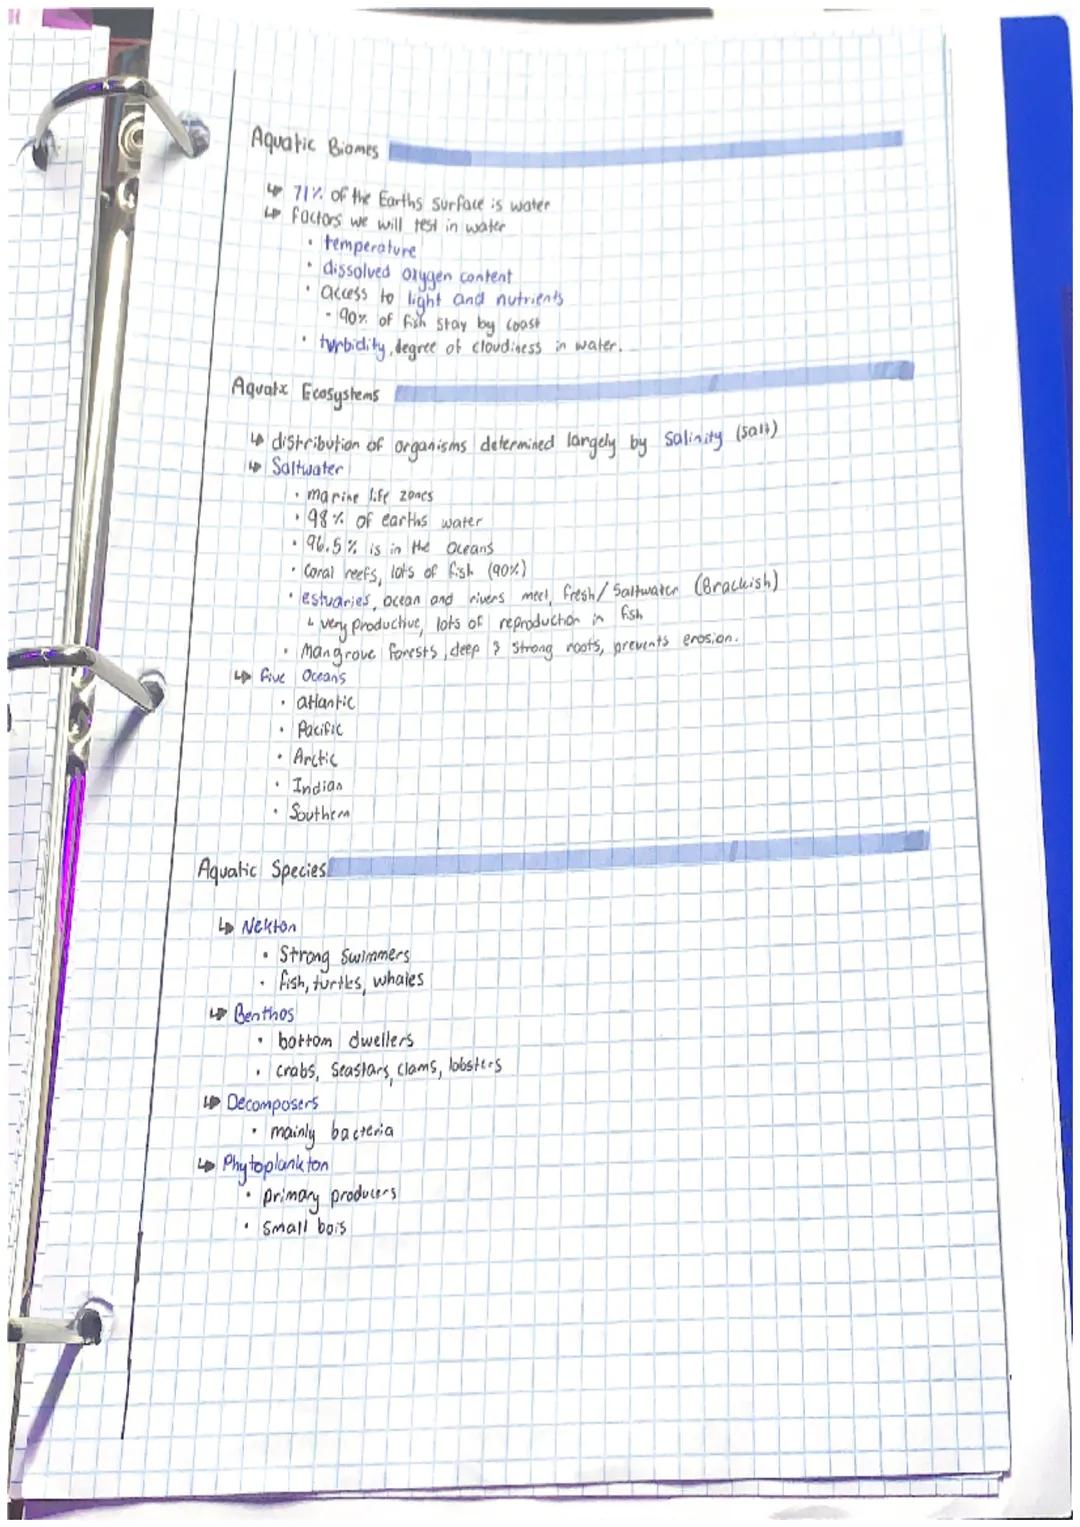 Aquatic Biomes
↳ 71% of the Earths surface is water
↳ factors we will test in water
• temperature
• dissolved oxygen content
• access to light and nutrients
- 90% of fish stay by coast
• turbidity, degree of cloudiness in water.
Aquatic Ecosystems
↳ distribution of organisms determined largely by Salinity (salt)
↳ Saltwater
• marine life zones
• 98% of earths water
• 96.5% is in the Oceans
• Coral reefs, lots of fish (90%)
• estuaries, ocean and rivers meet, fresh/Saltwater (Brackish)
↳ very productive, lots of reproduction in fish
• Mangrove forests, deep & strong roots, prevents erosion.
↳ five Oceans
• atlantic
• Pacific
• Arctic
• Indian
• Southern
Aquatic Species
↳ Nekton
• Strong Swimmers
• fish, turtles, whales
↳ Benthos
• bottom dwellers
• crabs, Seastars, clams, lobsters
↳ Decomposers
• mainly bacteria
↳ Phytoplankton
• primary producers
• Small bois